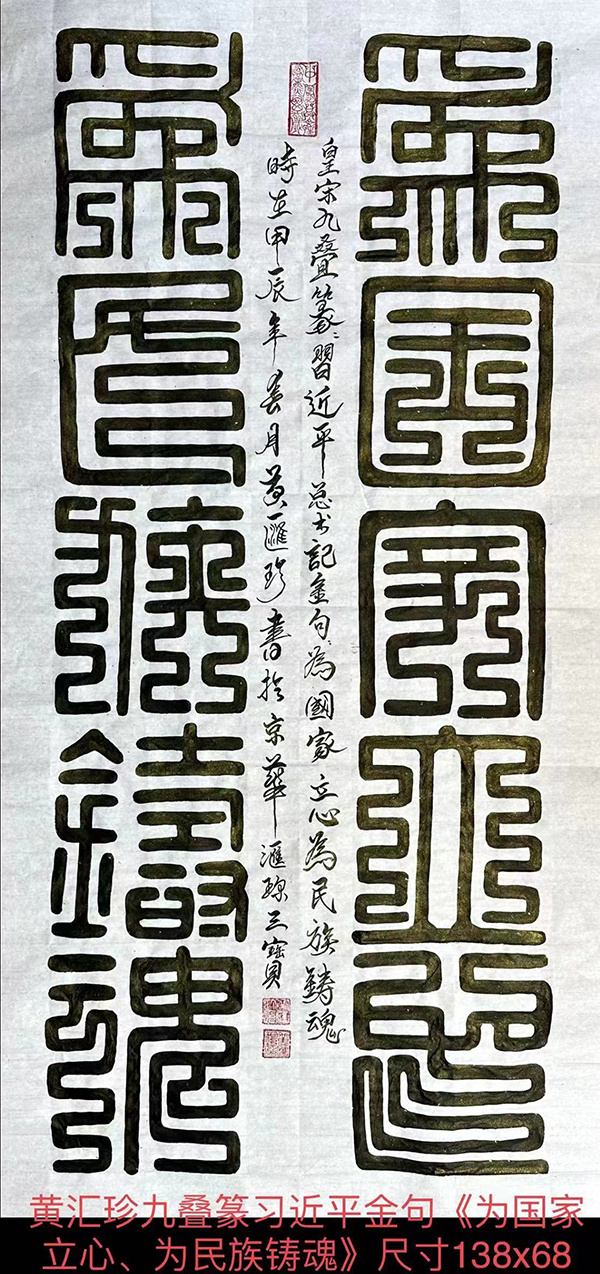 為國家立心
皇宋九疊篆：習近平总书記金句：為國家立心為民族鑄魂
時在甲辰年春月黄滙珍書於京華滙珍三寶貝
為民族鑄魂
黄汇珍九叠篆习近平金句《为国家
立心、为民族铸魂》尺寸138x68